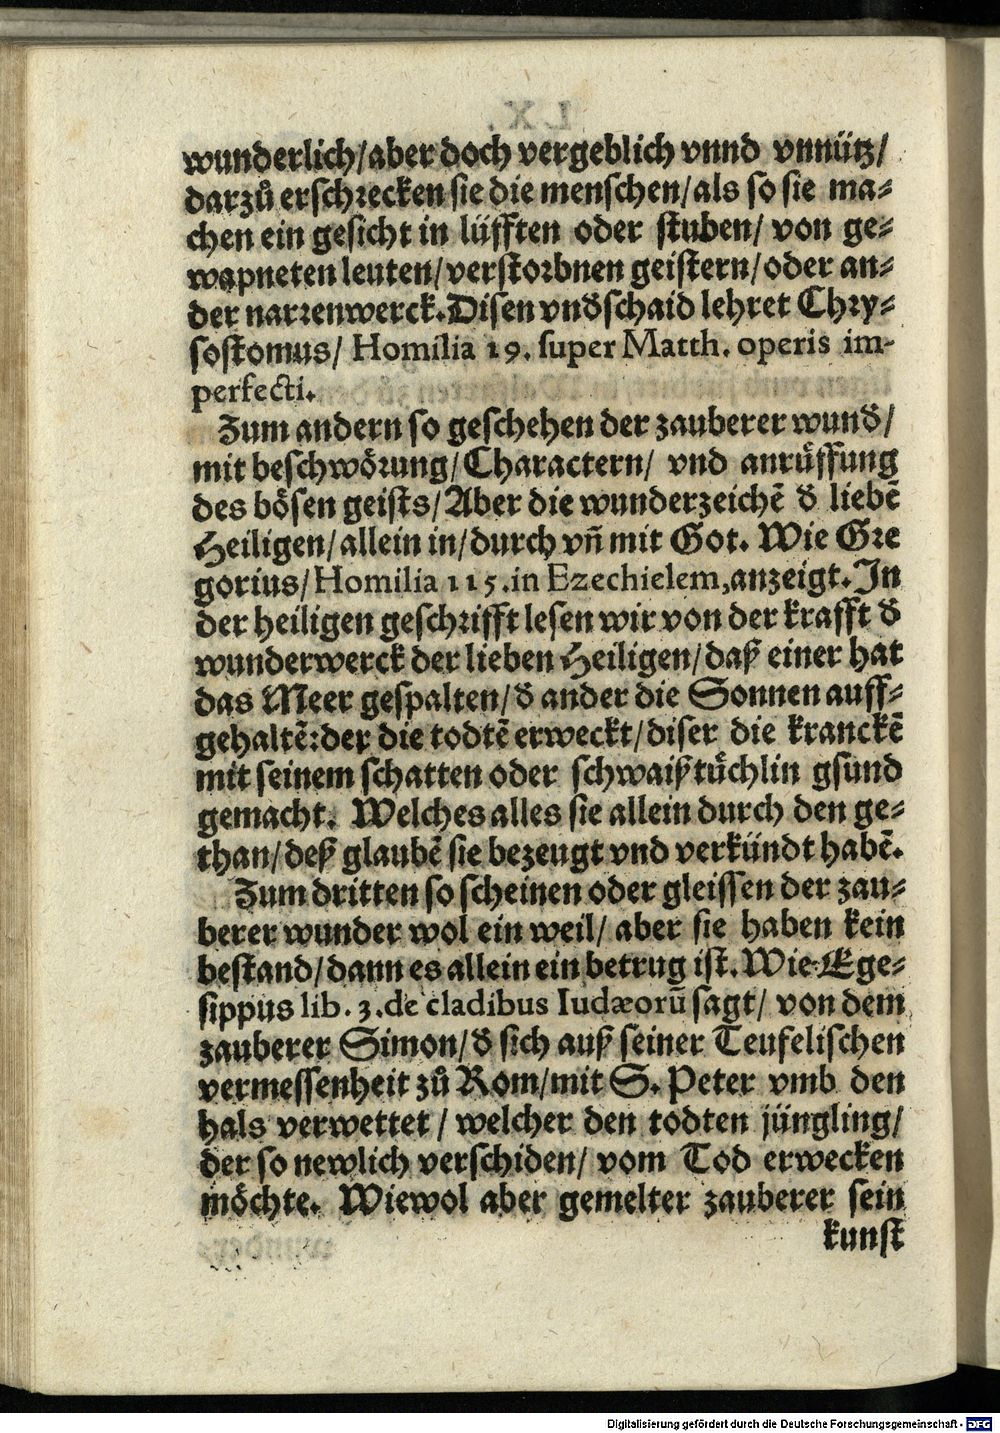 wunderlich/aber doch vergeblich vnnd vnnütz/
darzů erschrecken sie die menschen/als so sie ma⸗
chen ein gesicht in lüfften oder stuben/ von ge⸗
wapneten leuten/verstorbnen geistern/oder an⸗
der narrenwerck. Disen vndschaid lehret Chry⸗
sostomus/ Homilia 19. super Matth. operis im-
perfecti.
Zum andern so geschehen der zauberer wund/
mit beschwörung/Charactern/ vnd anrüffung
des bösen geists/Aber die wunderzeichẽ d liebẽ
Heiligen/allein in/durch vñ mit Got. Wie Gre
gorius/Homilia 115.in Ezechielem,anzeigt. In
der heiligen geschrifft lesen wir von der krafft d
wunderwerck der lieben Heiligen/daß einer hat
das Meer gespalten/d ander die Sonnen auff⸗
gehaltẽ:der die todtẽ erweckt/diser die kranckẽ
mit seinem schatten oder schwaißtüchlin gsund
gemacht. Welches alles sie allein durch den ge⸗
than/deß glaubẽ sie bezeugt vnd verkündt habẽ.
Zum dritten so scheinen oder gleissen der zau⸗
berer wunder wol ein weil/ aber sie haben kein
bestand/dann es allein ein betrug ist. Wie Ege⸗
sippus lib. 3. de cladibus Iudæorũ sagt/ von dem
zauberer Simon/d sich auß seiner Teufelischen
vermessenheit zů Rom/mit S. Peter vmb den
hals verwettet/ welcher den todten jüngling/
der so newlich verschiden/ vom Tod erwecken
möchte. Wiewol aber gemelter zauberer sein
kunst
Digitalisierung gefördert durch die Deutsche Forschungsgemeinschaft - DFG